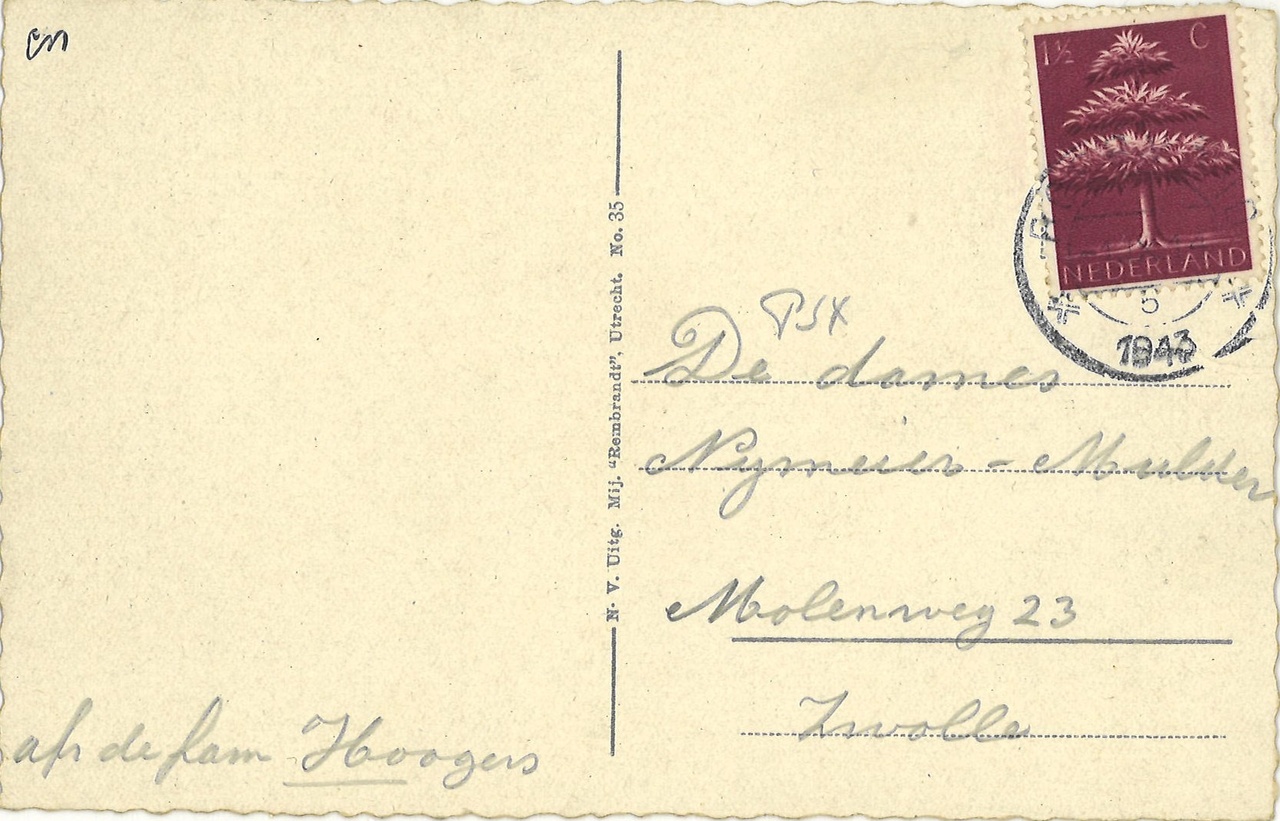 en
1½ C
NEDERLAND
5
1943
N. V. Uitg. Mij. “Rembrandt”, Utrecht. No. 35
De dames
Nymeier - Mulder
Molenweg 23
Zwolle
afz de fam Hoogers